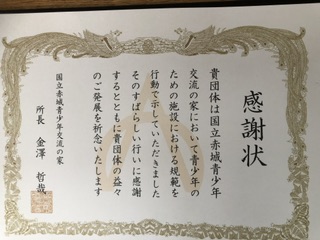 感謝状
貴団体は国立赤城青少年
交流の家において青少年の
ための施設における規範を
行動で示していただきました
そのすばらしい行いに感謝
するとともに貴団体の益々
のご発展を祈念いたします
国立赤城青少年交流の家
所長 金澤 哲哉